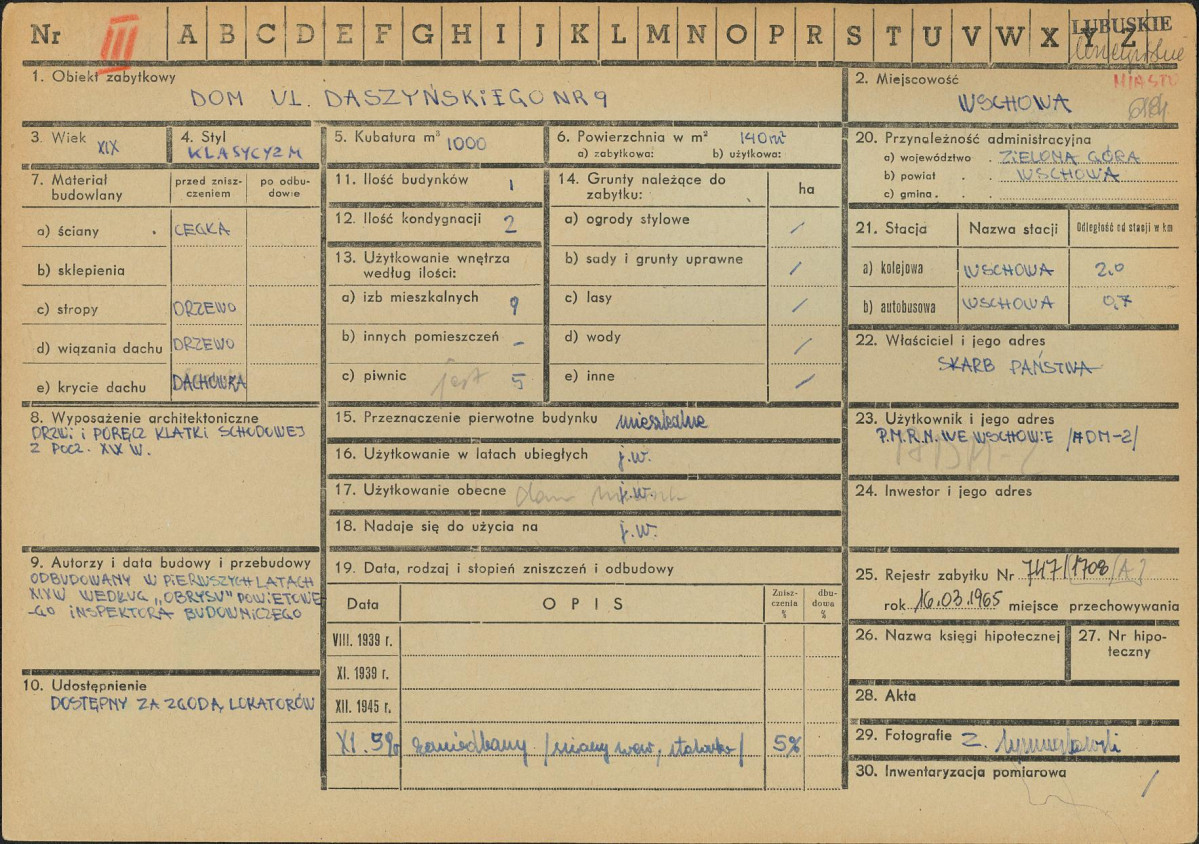 Nr III A B C D E F G H I J K L M N O P R S T U V W X Y Z LUBUSKIE
MIASTO
1. Obiekt zabytkowy
DOM UL. DASZYŃSKIEGO NR 9
2. Miejscowość
WSCHOWA
3. Wiek XIX
4. Styl
KLASYCYZM
5. Kubatura m³ 1000
6. Powierzchnia w m² 140 m²
a) zabytkowa: b) użytkowa:
20. Przynależność administracyjna
a) województwo ZIELONA GÓRA
b) powiat WSCHOWA
c) gmina
7. Materiał budowlany
przed znisz-
czeniem
po odbu-
dowie
a) ściany CEGŁA
b) sklepienia
c) stropy DRZEWO
d) wiązania dachu DRZEWO
e) krycie dachu DACHÓWKA
11. Ilość budynków 1
12. Ilość kondygnacji 2
13. Użytkowanie wnętrza
według ilości:
a) izb mieszkalnych 9
b) innych pomieszczeń –
c) piwnic jest 5
14. Grunty należące do
zabytku:
ha
a) ogrody stylowe /
b) sady i grunty uprawne /
c) lasy /
d) wody /
e) inne /
21. Stacja Nazwa stacji Odległość od stacji w km
a) kolejowa WSCHOWA 2.0
b) autobusowa WSCHOWA 0,7
22. Właściciel i jego adres
SKARB PAŃSTWA
8. Wyposażenie architektoniczne
DRZWI i PORĘCZ KLATKI SCHODOWEJ
Z POCZ. XIX W.
15. Przeznaczenie pierwotne budynku mieszkalne
16. Użytkowanie w latach ubiegłych j.w.
17. Użytkowanie obecne dom j.w.
18. Nadaje się do użycia na j.w.
23. Użytkownik i jego adres
P.M.R.N. WE WSCHOWIE /ADM-2/
ADM-2
24. Inwestor i jego adres
9. Autorzy i data budowy i przebudowy
ODBUDOWANY W PIERWSZYCH LATACH
XIX W WEDŁUG „OBRYSU" POWIATOWE
-GO INSPEKTORA BUDOWNICZEGO
10. Udostępnienie
DOSTĘPNY ZA ZGODĄ LOKATORÓW
19. Data, rodzaj i stopień zniszczeń i odbudowy
Data OPIS Znisz-
czenia
% dbu-
dowa
%
VIII. 1939 r.
XI. 1939 r.
XII. 1945 r.
XI. 59r zaniedbany /ściany wew, stolarka/ 5%
25. Rejestr zabytku Nr 747/1708/A
rok 16.03.1965 miejsce przechowywania
26. Nazwa księgi hipotecznej
27. Nr hipo-
teczny
28. Akta
29. Fotografie Z.
30. Inwentaryzacja pomiarowa /